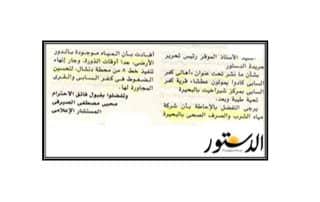 السيد الأستاذ الموقر رئيس تحرير
جريدة الدستور
بشأن ما نشر تحت عنوان «أهالى كفر
السابى كادوا يموتون عطشا» قرية كفر
السابى بمركز شبراخيت بالبحيرة
تحية طيبة وبعد،
يرجى التفضل بالإحاطة بأن شركة
مياه الشرب والصرف الصحى بالبحيرة
أفادت بأن المياه موجودة بالدور
الأرضى، عدا أوقات الذروة، وجار إنهاء
تنفيذ خط ٨ من محطة دنشال، لتحسين
الضغوط فى كفر السابى والقرى
المجاورة لها.
وتفضلوا بقبول فائق الاحترام
محيى مصطفى الصيرفى
المستشار الإعلامى
الدستور